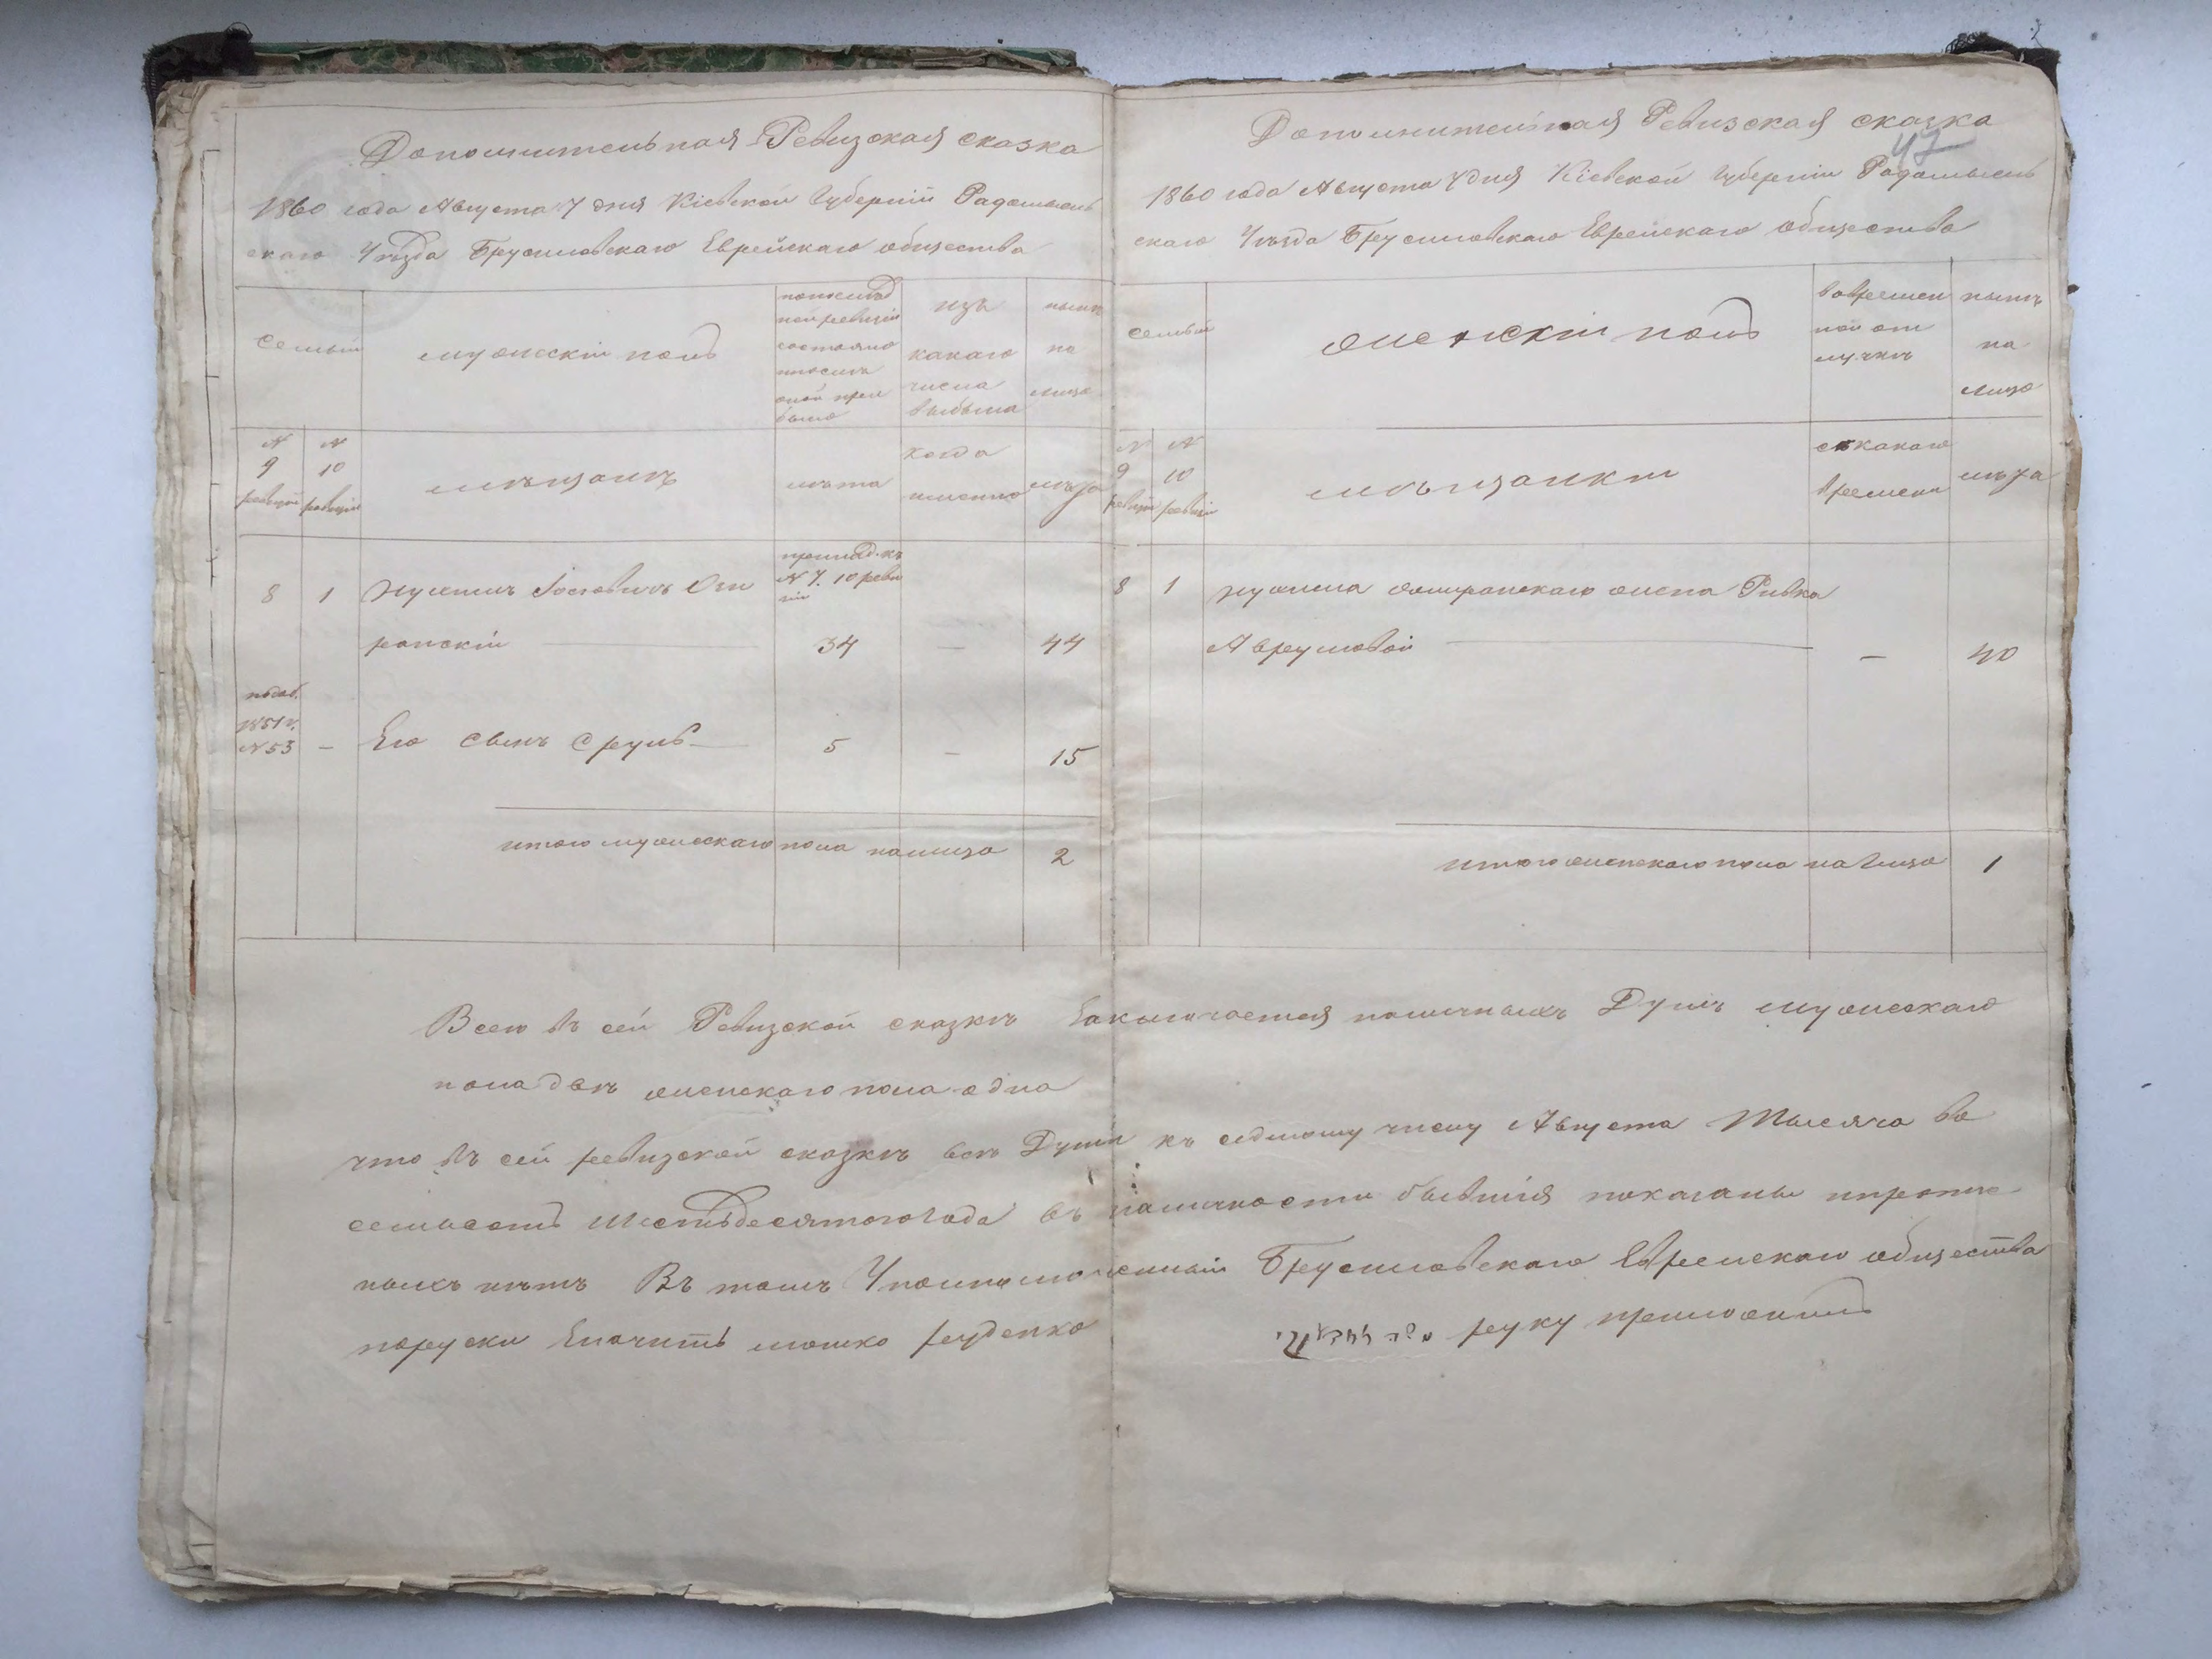 Дополнительная Ревизская сказка
1860 года Августа 7 дня Кіевской Губерніи Радомысль
скаго Уѣзда Брусиловскаго Еврейскаго общества
Семьи
мужескій полъ
по послѣд
ней ревизіи
состояло
и послѣ
оной при
было
изъ
какаго
числа
выбыли
нынѣ
на
лицо
№
9
ревизіи
№
10
ревизіи
мѣщанъ
лѣта
когда
именно
лѣта
8 1 Іосіовичъ
№ 7. 10 реви
зіи
ранскій 34 — 44
1851 г.
№ 53 — Его сынъ Сруль 5 — 15
итого мужескаго пола налицо 2
Дополнительная Ревизская сказка
47
1860 года Августа 7 дня Кіевской Губерніи Радомысль
скаго Уѣзда Брусиловскаго Еврейскаго общества
Семьи
женскій полъ
во времен
ной от
лучкѣ
нынѣ
на
лицо
№
9
ревизіи
№
10
ревизіи
мѣщанки
съ какаго
времени
лѣта
8 1 жена Ривка
Аврумовой — 40
итого женскаго пола на лицо 1
Всего въ сей Ревизской сказкѣ Заключается наличныхъ Душъ мужескаго
пола двѣ женскаго пола одна
что въ сей ревизской сказкѣ всѣ Души къ седмому числу Августа Тысяча во
семьсотъ шестьдесятого года въ наличности бывшія показаны и прописа
ныхъ нѣтъ Въ томъ Уполномоченный Брусиловскаго Еврейскаго общества
поруски Значитъ мошко руденко руку приложилъ